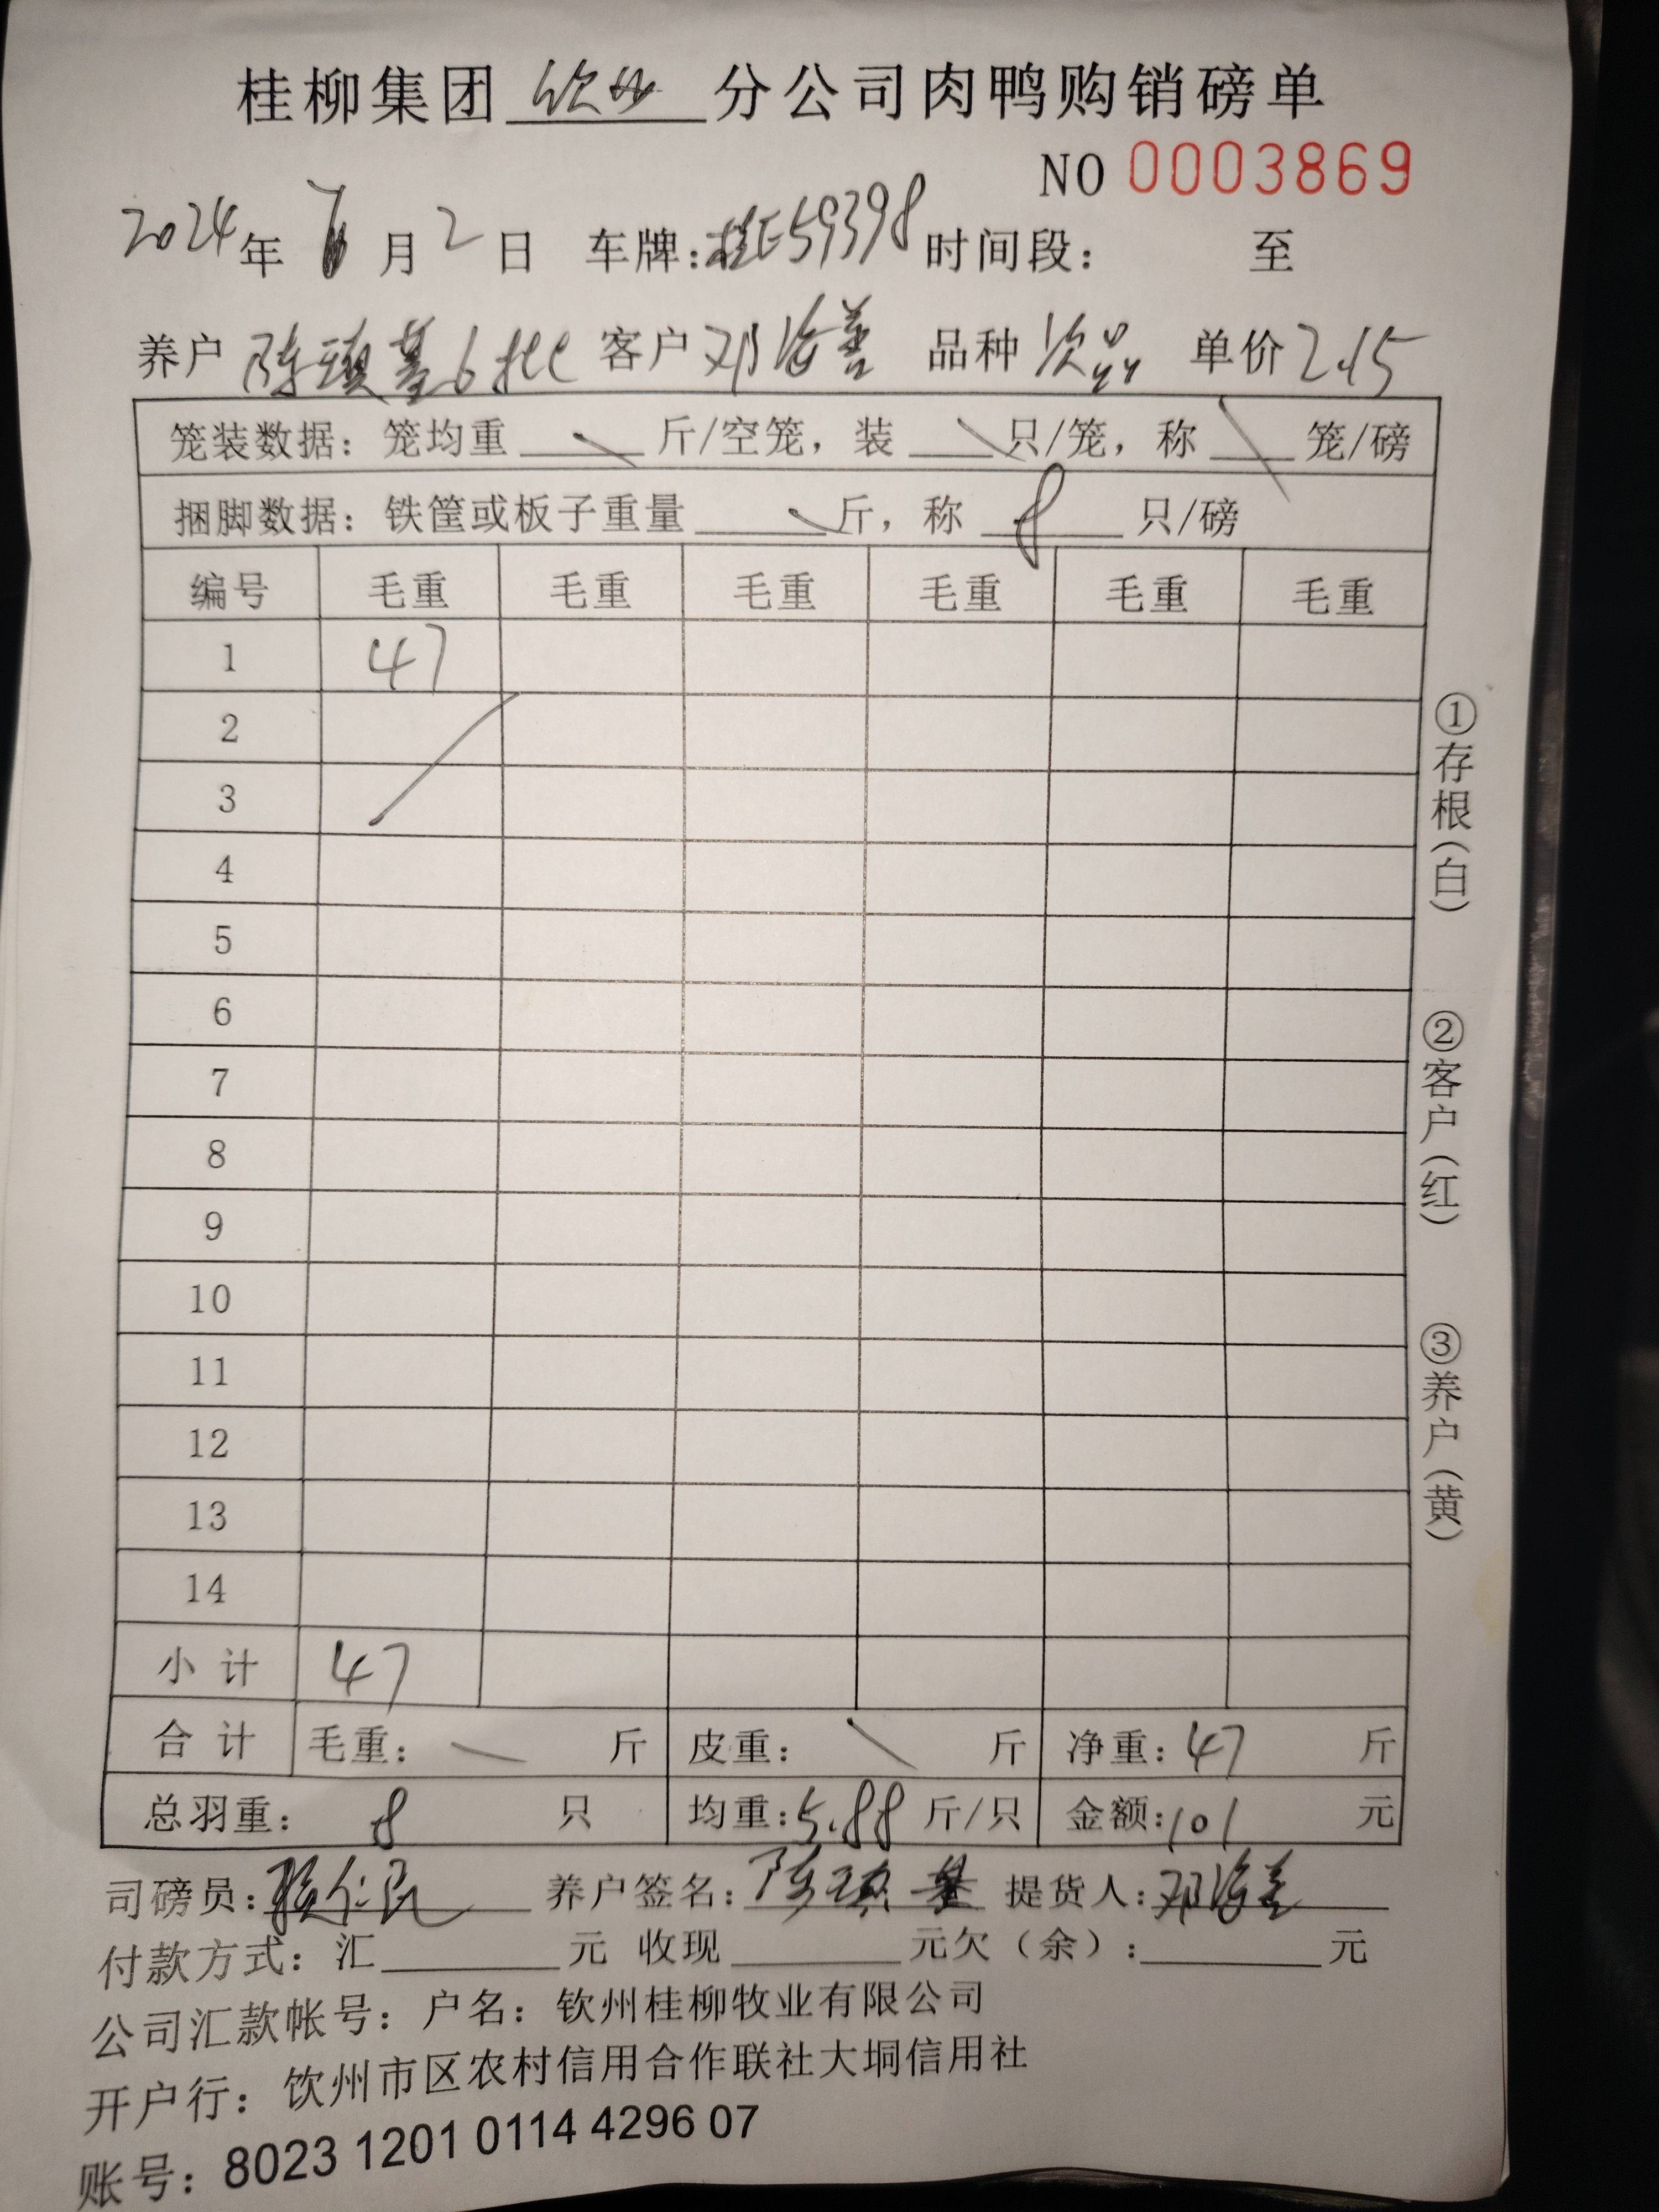 桂柳集团 钦州 分公司肉鸭购销磅单
NO 0003869
2024年 7 月 2 日 车牌:桂E59398 时间段: 至
养户 陈琪基6批 客户 邓海善 品种 次品 单价 2.15
笼装数据:笼均重 斤/空笼,装 只/笼,称 笼/磅
捆脚数据:铁筐或板子重量 斤,称 8 只/磅
编号 毛重 毛重 毛重 毛重 毛重 毛重
1 47
2
3
4
5
6
7
8
9
10
11
12
13
14
小计 47
合计 毛重: 斤 皮重: 斤 净重:47 斤
总羽重: 8 只 均重:5.88 斤/只 金额:101 元
司磅员: 仁民 养户签名:陈琪基 提货人:邓海善
付款方式:汇 元 收现 元欠(余): 元
公司汇款帐号:户名:钦州桂柳牧业有限公司
开户行:钦州市区农村信用合作联社大垌信用社
账号:8023 1201 0114 4296 07
①存根(白)
②客户(红)
③养户(黄)